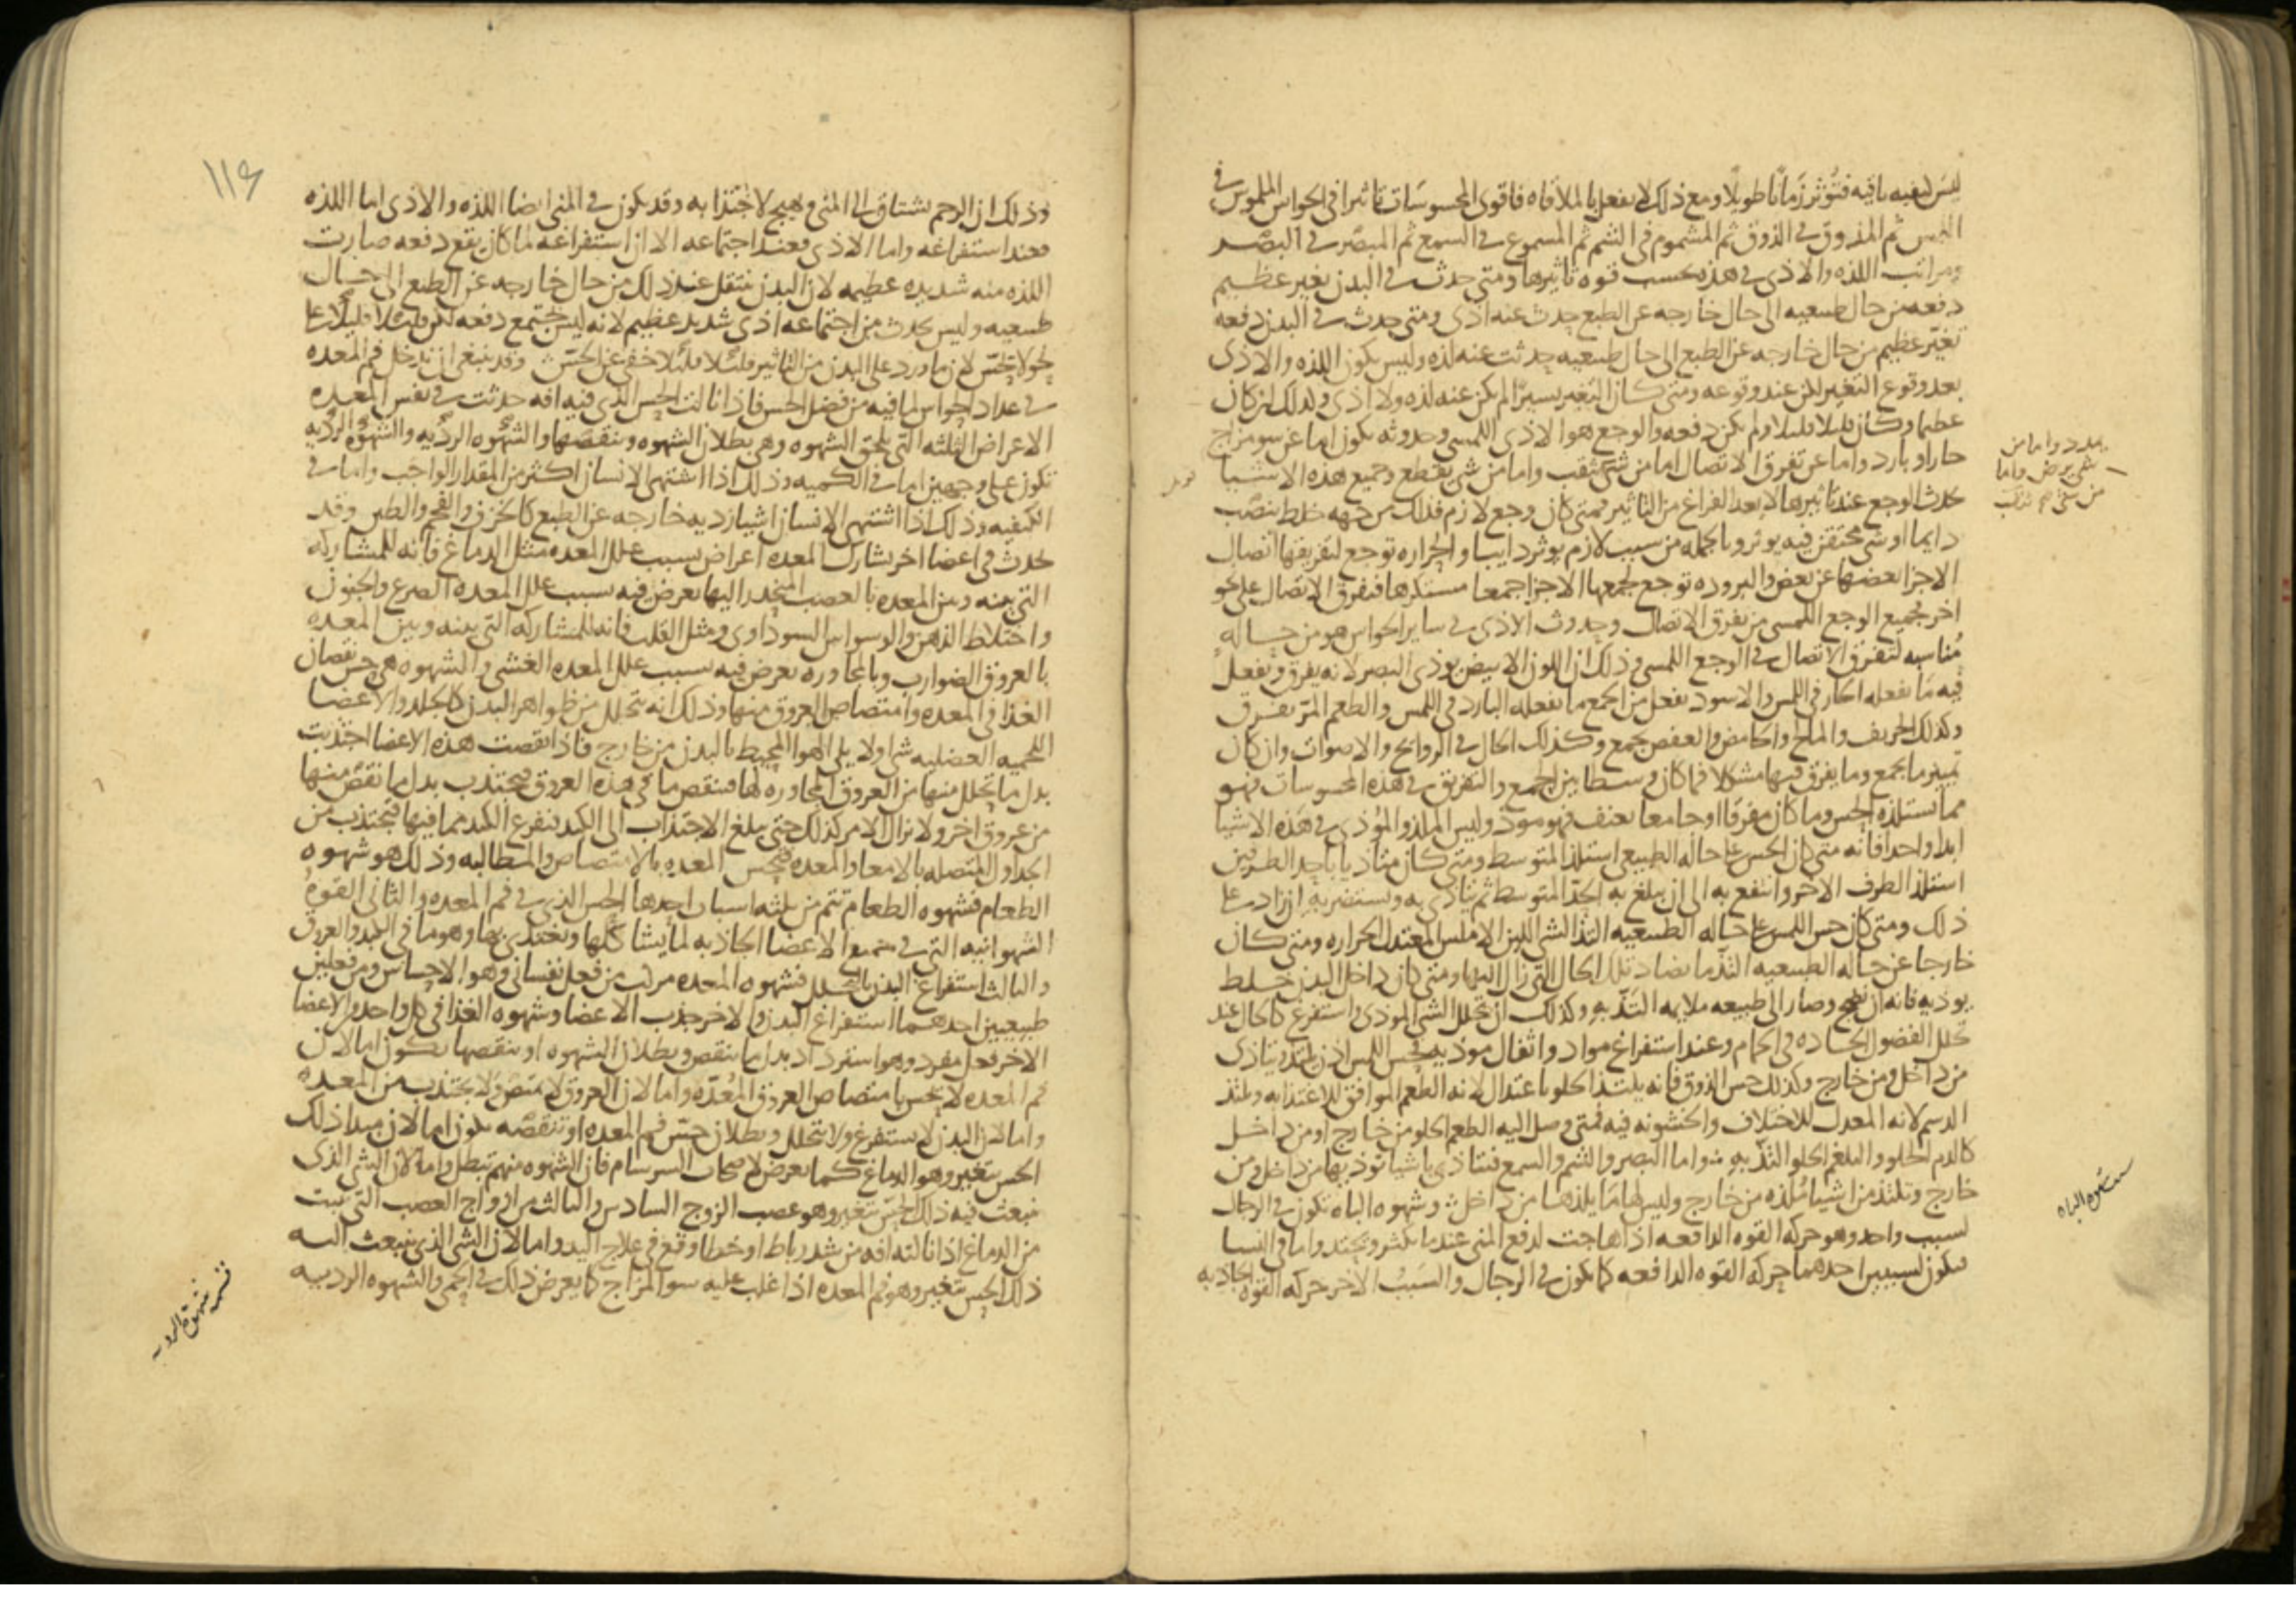 ليس لبعيه باقيه فتوثر زمانا طويلا ومع ذلك لا يفعل بالملاقاه فاقوى المحسوسات تاثيرا في الحواس الملموس في
اللمس ثم المذوق في الذوق ثم المشموم في الشم ثم المسموع في السمع ثم المبصر في البصر
ومراتب اللذه والاذى في هذه بحسب قوه تاثيرها ومتى حدث في البدن تغير عظيم
دفعه من حال طبيعيه الى حال خارجه عن الطبع حدث عنه اذى ومتى حدث في البدن دفعه
تغير عظيم من حال خارجه عن الطبع الى حال طبيعيه حدثت عنه لذه وليس يكون اللذه والاذى
بعد وقوع التغير لكن عند وقوعه ومتى كان التغير يسيرا لم يكن عنه لذه ولا اذى ولذلك ان كان
عظيما وكان قليلا قليلا ولم يكن دفعه والوجع هو الاذى اللمسي وحدوثه يكون اما عن سو مزاج
حار او بارد واما عن تفرق الاتصال اما من شي يثقب واما من شي يقطع وجميع هذه الاشيا
يحدث الوجع عند تاثيرها لا بعد الفراغ من التاثير فمتى كان وجع لازم فذلك من جهه خلط ينصب
دايما او شي محتقن فيه يوثر وبالجمله من سبب لازم يوثر دايبا والحراره توجع لتفريقها اتصال
الاجزا بعضها عن بعض والبروده توجع لجمعها الاجزا جمعا مستكرها فتفرق الاتصال على نحو
اخر فجميع الوجع اللمسي من تفرق الاتصال وحدوث الاذى في ساير الحواس هو من حاله
مناسبه لتفرق الاتصال في الوجع اللمسي وذلك ان اللون الابيض يوذى البصر لانه يفرق ويفعل
فيه ما يفعله الحار في اللمس والاسود يفعل من الجمع ما يفعله البارد في اللمس والطعم المر يفرق
وكذلك الحريف والمالح والحامض والعفص يجمع وكذلك الحال في الروايح والاصوات وان كان
تمييز ما يجمع وما يفرق فيها مشكلا فما كان وسطا بين الجمع والتفريق في هذه المحسوسات فهو
مما تستلذه الحس وما كان مفرقا او جامعا بعنف فهو موذ وليس الملذ والموذى في هذه الاشيا
ابدا واحدا فانه متى كان الحس على حاله الطبيعي استلذ المتوسط ومتى كان متاذيا باحد الطرفين
استلذ الطرف الاخر وانتفع به الى ان يبلغ به الحد المتوسط ثم يتاذى به ويستضر به ان زاد على
ذلك ومتى كان حس اللمس على حاله الطبيعيه التذ الشي اللين الاملس المعتدل الحراره ومتى كان
خارجا عن حاله الطبيعيه التذ ما يضاد تلك الحال التي زال اليها ومتى كان داخل البدن خلط
يوذيه فانه ان نضج وصار الى طبيعه ملايمه التذ به وكذلك ان تحلل الشي الموذى واستفرغ كالحال عند
تحلل الفضول الحاده في الحمام وعند استفراغ مواد واثفال موذيه فحس اللمس اذن يلتذ ويتاذى
من داخل ومن خارج وكذلك حس الذوق فانه يلتذ الحلو باعتدال لانه الطعم الموافق للاغتذا به ويلتذ
الدسم لانه المعدل للاختلاف والخشونه فيه فمتى وصل اليه الطعم الحلو من خارج او من داخل
كالدم الحلو والبلغم الحلو التذ به واما البصر والشم والسمع فتتاذى باشيا توذيها من داخل ومن
خارج وتلتذ من اشيا ملذه من خارج وليس لها ما يلذها من داخل وشهوه الباه تكون في الرجال
لسبب واحد وهو حركه القوه الدافعه اذا هاجت لدفع المنى عندما يكثر ويحتد واما في النسا
فيكون لسببين احدهما حركه القوه الدافعه كما يكون في الرجال والسبب الاخر حركه القوه الجاذبه
واما من
شي يرض واما
شهوه الباه
١١٤
وذلك ان الرحم يشتاق الى المنى ويهيج لاجتذابه وقد يكون في المنى ايضا اللذه والاذى اما اللذه
فعند استفراغه واما الاذى فعند اجتماعه الا ان استفراغه لما كان يقع دفعه صارت
اللذه منه شديده عظيمه لان البدن ينتقل عند ذلك من حال خارجه عن الطبع الى حال
طبيعيه وليس يحدث من اجتماعه اذى شديد عظيم لانه ليس يجتمع دفعه لكن قليلا قليلا على
نحو لا يحس لان ما ورد على البدن من التاثير قليلا قليلا خفى عن الحس وقد ينبغي ان يدخل فم المعده
في عداد الحواس لما فيه من فضل الحس فاذا نالت الحس الذي فيه افه حدثت في نفس المعده
الاعراض الثلثه التي تلحق الشهوه وهي بطلان الشهوه ونقصها والشهوه الرديه والشهوه الرديه
تكون على وجهين اما في الكميه وذلك اذا اشتهى الانسان اكثر من المقدار الواجب واما في
الكيفيه وذلك اذا اشتهى الانسان اشيا رديه خارجه عن الطبع كالخزف والفحم والطين وقد
يحدث في اعضا اخر تشارك المعده اعراض بسبب علل المعده مثل الدماغ فانه للمشاركه
التي بينه وبين المعده بالعصب المنحدر اليها يعرض فيه بسبب علل المعده الصرع والجنون
واختلاط الذهن والوسواس السوداوى ومثل القلب فانه للمشاركه التي بينه وبين المعده
بالعروق الضوارب وبالمجاوره يعرض فيه بسبب علل المعده الغشى والشهوه هي حس نقصان
الغذا في المعده وامتصاص العروق منها وذلك انه يتحلل من ظواهر البدن كالجلد والاعضا
اللحميه العضليه شي اولا يلى الهوا المحيط بالبدن من خارج فاذا نقصت هذه الاعضا اجتذبت
بدل ما يتحلل منها من العروق المجاوره لها فينقص ما في هذه العروق فيجتذب بدل ما نقص منها
من عروق اخر ولا يزال الامر كذلك حتى يبلغ الاجتذاب الى الكبد فتفرغ الكبد مما فيها فيجتذب من
الجداول المتصله بالامعا والمعده فيحس المعده بالامتصاص والمطالبه وذلك هو شهوه
الطعام فشهوه الطعام تتم من ثلثه اسباب احدها الحس الذي في فم المعده والثاني القوه
الشهوانيه التي في جميع الاعضا الجاذبه لما يشاكلها وتغتذى بها وهو ما في الكبد والعروق
والثالث استفراغ البدن بالتحلل فشهوه المعده مركب من فعل نفساني وهو الاحساس ومن فعلين
طبيعيين احدهما استفراغ البدن والاخر جذب الاعضا وشهوه الغذا في كل واحد من الاعضا
الاخر فعل مفرد وهو استرداد بدل ما ينقص وبطلان الشهوه او نقصها يكون اما لان
فم المعده لا يحس بامتصاص العروق المعده واما لان العروق لا تمتص ولا يجتذب من المعده
واما لان البدن لا يستفرغ ولا يتحلل وبطلان حس فم المعده او نقصه يكون اما لان مبدا ذلك
الحس يتغير وهو الدماغ كما يعرض لاصحاب السرسام فان الشهوه منهم تبطل واما لان الشي الذي
ينبعث فيه ذلك الحس يتغير وهو عصب الزوج السادس والثالث من ازواج العصب التي تنبت
من الدماغ اذا نالته افه من شد رباط او خطا وقع في علاج اليد واما لان الشي الذي ينبعث اليه
ذلك الحس يتغير وهو فم المعده اذا غلب عليه سو المزاج كما يعرض ذلك في الحمى والشهوه الرديه
شهوة الرديه